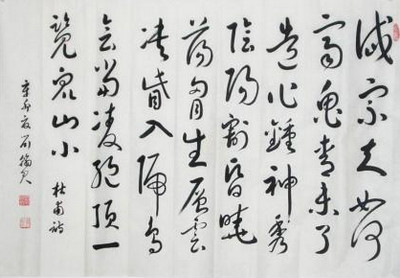 岱宗夫如何
齊魯青未了
造化鍾神秀
陰陽割昏曉
蕩胸生層雲
決眥入歸鳥
會當凌絕頂一
覽眾山小
杜甫詩
辛卯夏